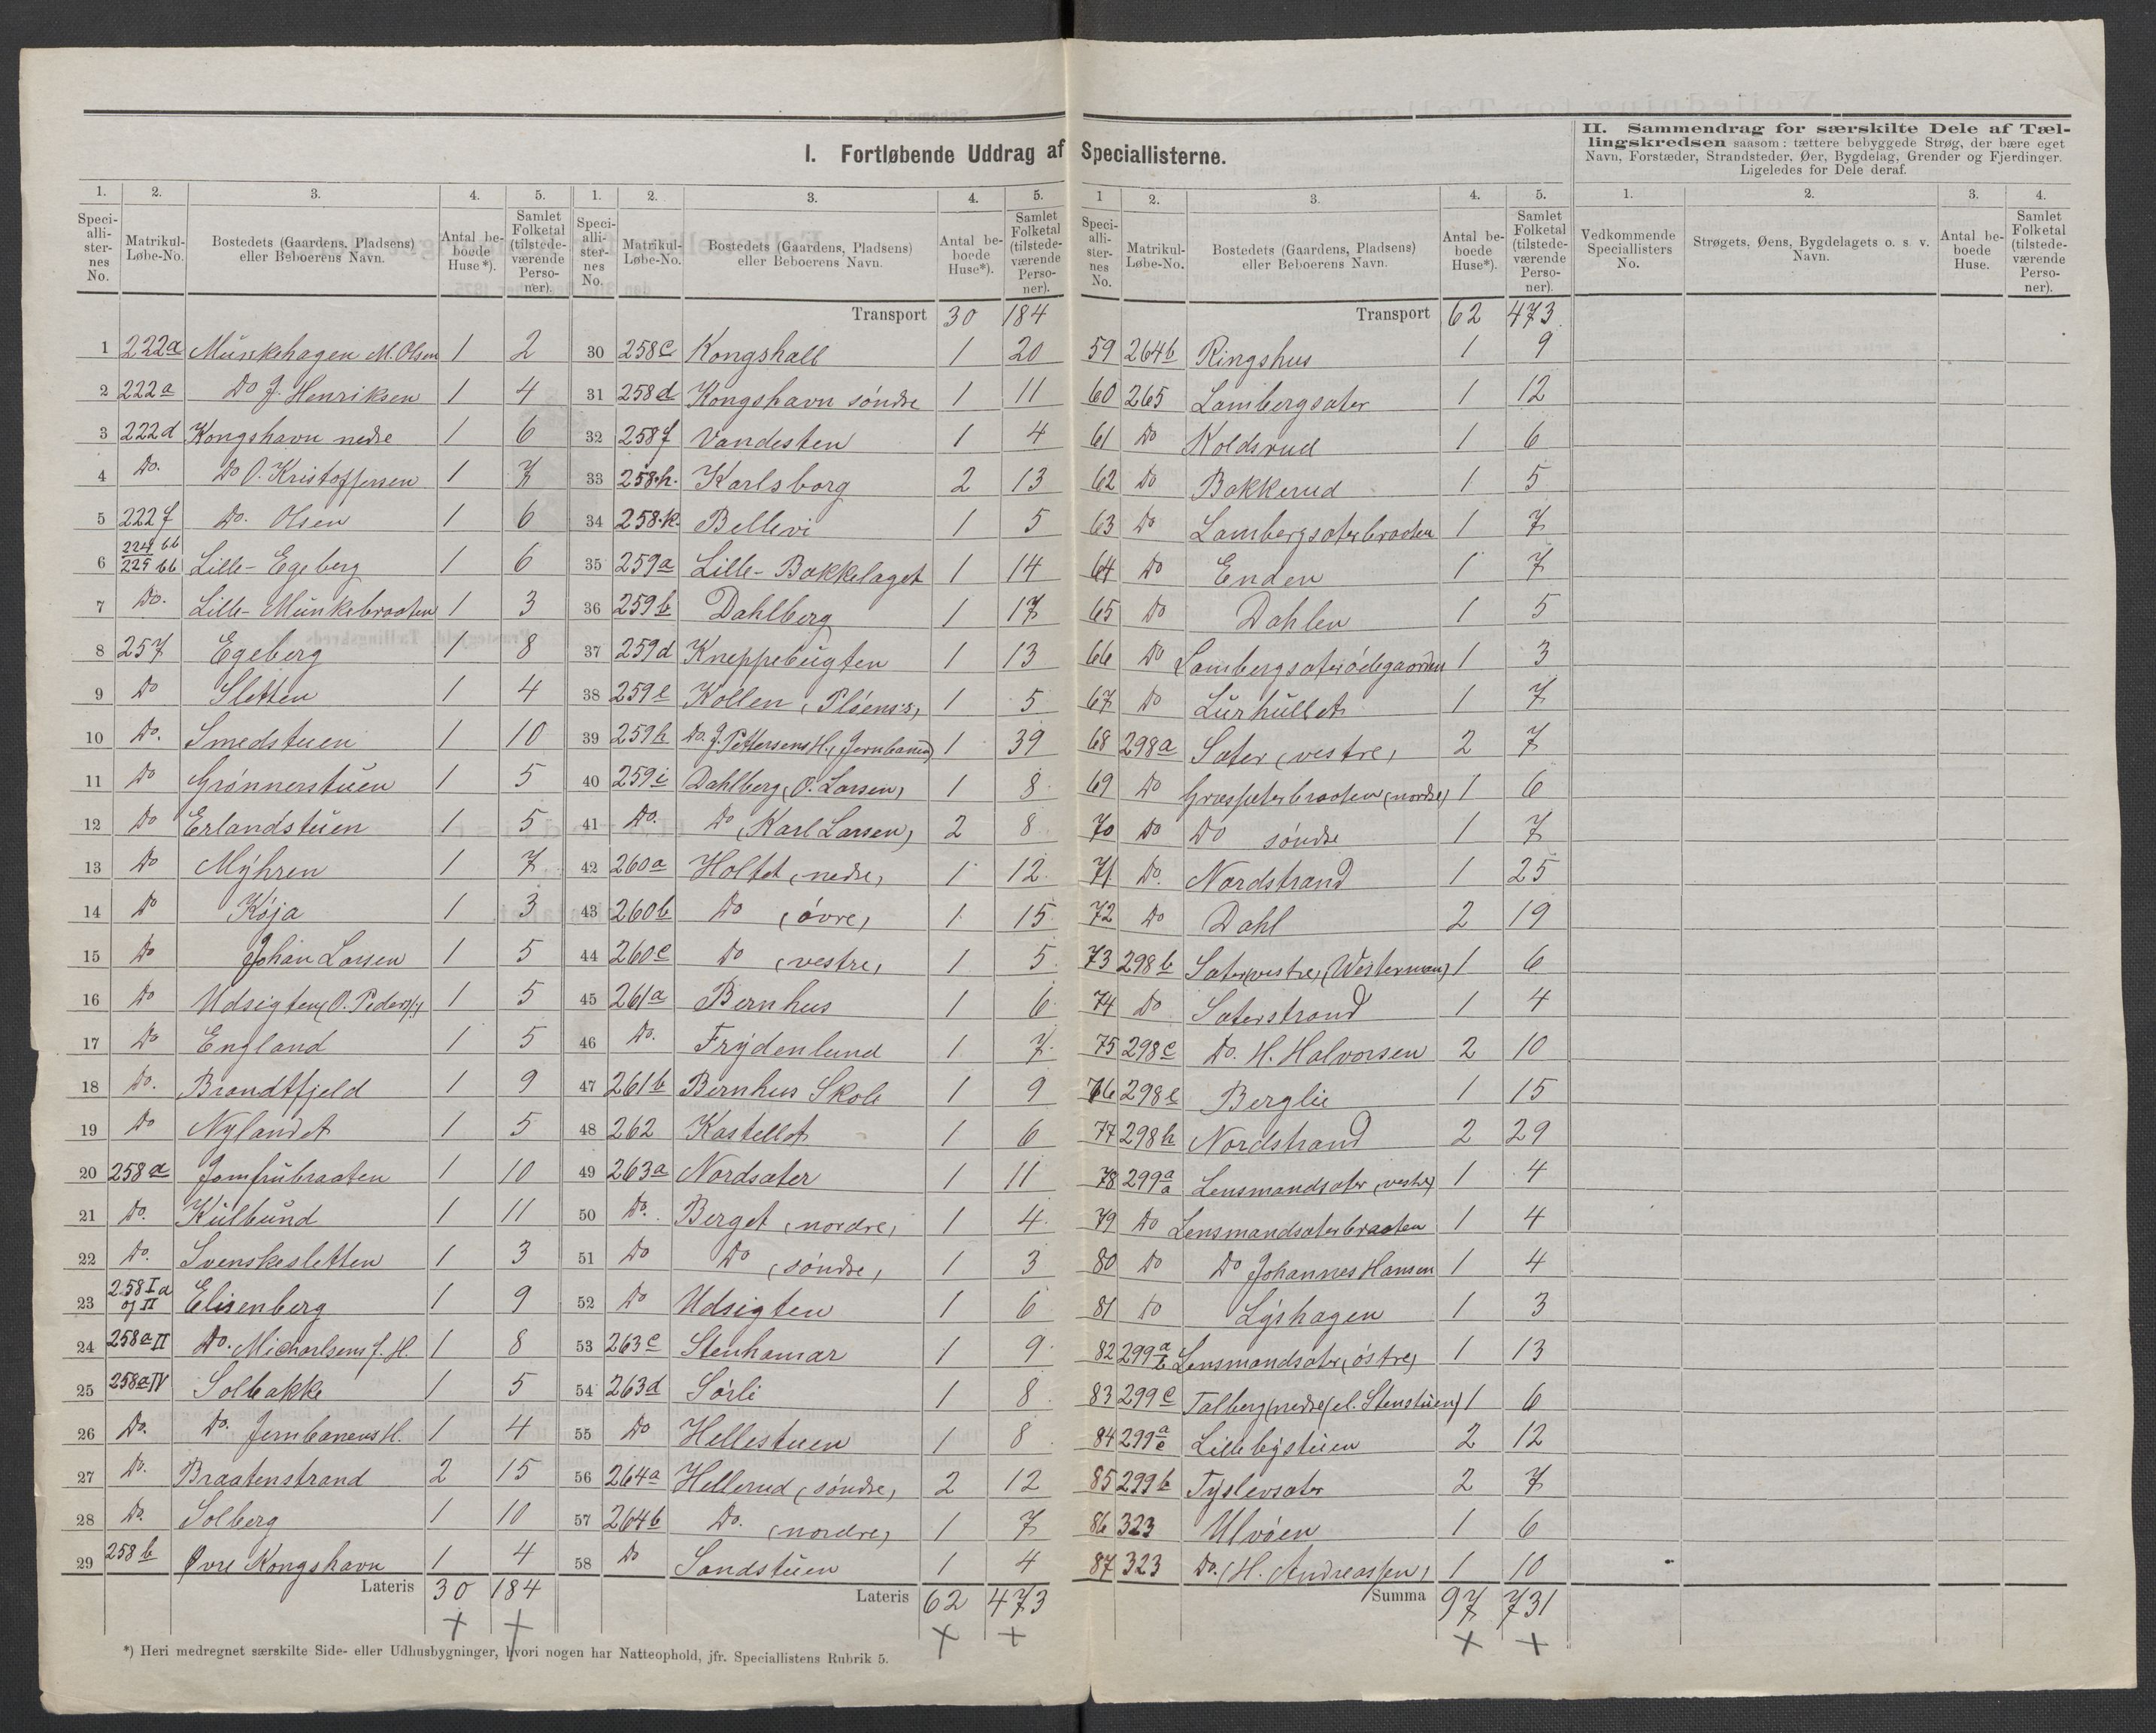 I. Fortløbende Uddrag af Speciallisterne.
II. Sammendrag for særskilte Dele af Tæl-
lingskredsen saasom: tættere bebyggede Strøg, der bære eget
Navn, Forstæder, Strandsteder, Øer, Bygdelag, Grender og Fjerdinger.
Ligeledes for Dele deraf.
1. 2. 3. 4. 5.
Speciallisternes No. Matrikul-Løbe-No. Bostedets (Gaardens, Pladsens) eller Beboerens Navn. Antal beboede Huse*). Samlet Folketal (tilstedeværende Personer).
1 222a Munkehagen M. Olsen 1 2
2 222a Do J. Henriksen 1 4
3 222d Kongshavn nedre 1 6
4 Do. Do O. Kristoffersen 1 7
5 222f Do. Olsen 1 6
6 224 bb 225 bb Lille-Egeberg 1 6
7 Do. Lille-Munkebraaten 1 3
8 257 Egeberg 1 8
9 Do Sletten 1 4
10 Do. Smedstuen 1 10
11 Do Grønnerstuen 1 5
12 Do Erlandstuen 1 5
13 Do Myhren 1 7
14 Do Køja 1 3
15 Do Johan Larsen 1 5
16 Do Udsigten (O. Peders) 1 5
17 Do England 1 5
18 Do. Brandtfjeld 1 9
19 Do Nylandet 1 5
20 258a Jomfrubraaten 1 10
21 Do. Kulbund 1 11
22 Do. Svenskesletten 1 3
23 258 I a og II Elisenberg 1 9
24 258a II Do. Michaelsens f. H. 1 8
25 258a IV Solbakke 1 5
26 Do. Do. Jernbanens H. 1 4
27 Do. Braatenstrand 2 15
28 Do. Solberg 1 10
29 258b Øvre Kongshavn 1 4
Lateris 30 184
1. 2. 3. 4. 5.
Speciallisternes No. Matrikul-Løbe-No. Bostedets (Gaardens, Pladsens) eller Beboerens Navn. Antal beboede Huse*). Samlet Folketal (tilstedeværende Personer).
Transport 30 184
30 258c Kongshall 1 20
31 258d Kongshavn søndre 1 11
32 258f Vandesten 1 4
33 258.h. Karlsborg 2 13
34 258.k. Bellevi 1 5
35 259a Lille-Bakkelaget 1 14
36 259b Dahlberg 1 17
37 259d Kneppebugten 1 13
38 259e Kollen, Pløens:s, 1 5
39 259h Do. J. Pettersens H., Jernbanen) 1 39
40 259i Dahlberg (O. Larsen) 1 8
41 Do. Do (Karl Larsen) 2 8
42 260a Holtet (nedre) 1 12
43 260b Do (øvre) 1 15
44 260c Do (vestre) 1 5
45 261a Bernhus 1 6
46 Do. Frydenlund 1 7
47 261b Bernhus Skole 1 9
48 262 Kastellet 1 6
49 263a Nordsæter 1 11
50 Do. Berget (nordre) 1 4
51 Do Do (søndre) 1 3
52 Do Udsigten 1 6
53 263c Stenhamar 1 9
54 263d Sørli 1 8
55 Do Hellestuen 1 8
56 264a Hellerud (søndre) 2 12
57 264b Do. (nordre) 1 7
58 Do Sandstuen 1 4
Lateris 62 473
1 2. 3. 4. 5.
Speciallisternes No. Matrikul-Løbe-No. Bostedets (Gaardens, Pladsens) eller Beboerens Navn. Antal beboede Huse*). Samlet Folketal (tilstedeværende Personer).
Transport 62 473
59 264b Ringshus 1 9
60 265 Lambergsæter 1 12
61 Do Koldsrud 1 6
62 Do Bakkerud 1 5
63 Do Lambergsæterbraaten 1 7
64 Do Enden 1 7
65 Do Dahlen 1 5
66 Do Lambergsæterødegaarden 1 3
67 Do Lurhullet 1 7
68 298a Sæter (vestre) 2 7
69 Do Græssæterbraaten (nordre) 1 6
70 Do Do søndre 1 7
71 Do. Nordstrand 1 25
72 Do Dahl 2 19
73 298b Sæter, vestre, (Westerman) 1 6
74 Do Sæterstrand 1 4
75 298c Do. H. Halvorsen 2 10
76 298e Berglie 1 15
77 298h Nordstrand 2 29
78 299a a Lensmandsæter (vestre) 1 4
79 Do Lensmandsæterbraaten 1 4
80 Do Do Johannes Hansen 1 4
81 Do Lyshagen 1 3
82 299a b Lensmandsæter (østre) 1 13
83 299c Talberg (nedre (el. Stenstuen) 1 6
84 299a c Lillebystuen 2 12
85 299b Tyslevsæter 2 7
86 323 Ulvøen 1 6
87 323 Do. (H. Andreassen) 1 10
Summa 97 731
1. 2. 3. 4.
Vedkommende Speciallisters No. Strøgets, Øens, Bygdelagets o. s. v. Navn. Antal beboede Huse. Samlet Folketal (tilstedeværende Personer).
*) Heri medregnet særskilte Side- eller Udhusbygninger, hvori nogen har Natteophold, jfr. Speciallistens Rubrik 5.